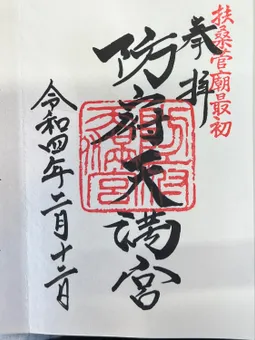 扶桑菅廟最初
奉拝
防府天満宮
令和四年二月十二日